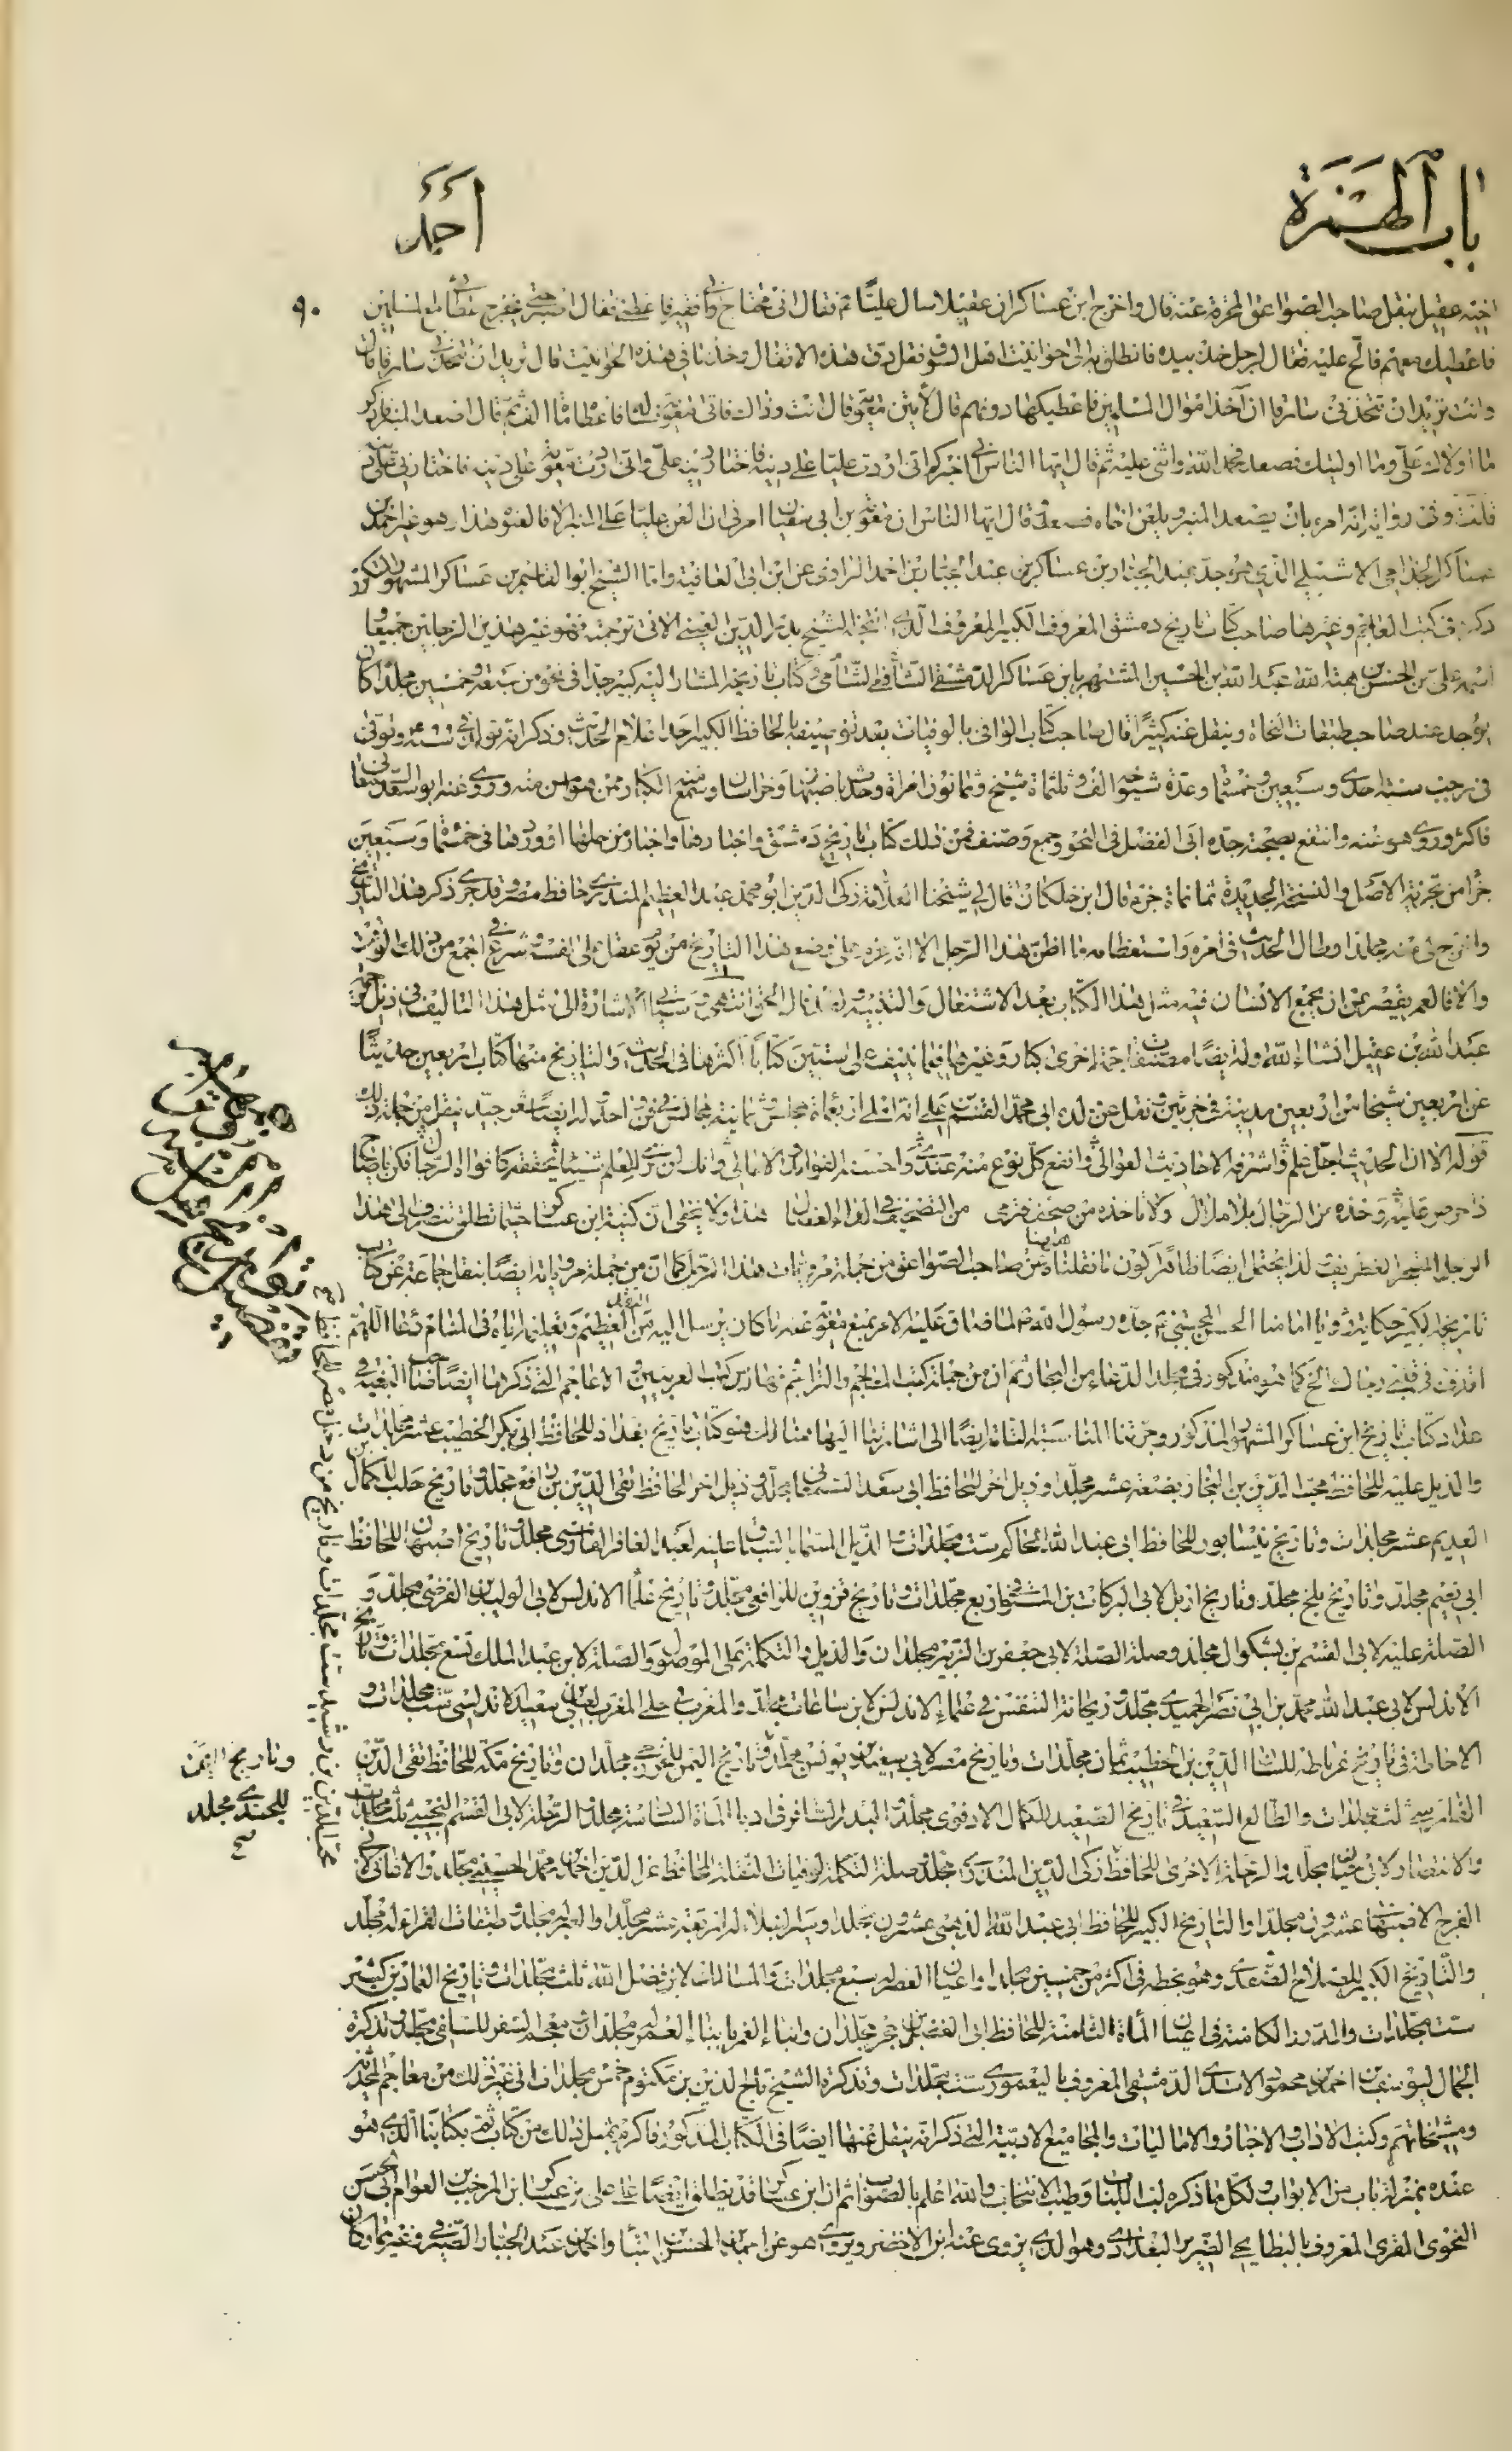 باب الهمزة
أحمد
٩٠
اخيه عقيل بنقل صاحب الصواعق المحرقة عنه قال واخرج ابن عساكر ان عقيلا سال عليا ع فقال اني محتاج واني فقير فاعطني فقال اصبر حتى يخرج عطائي مع المسلمين
فاعطيك معهم فالح عليه فقال لرجل خذ بيده فانطلق به الى حوانيت اهل السوق فقل دق هذه الاقفال وخذ ما في هذه الحوانيت قال تريد ان تتخذني سارقا قال
وانت تريد ان تتخذني سارقا ان آخذ اموال المسلمين فاعطيكها دونهم قال لآتين معوية قال انت وذاك فاتى معوية فساله فاعطاه مائة الف ثم قال اصعد المنبر فاذكر
ما اولاك علي وما اوليتك فصعد فحمد الله واثنى عليه ثم قال ايها الناس اني اخبركم اني اردت عليا على دينه فاختار دينه علي واني اردت معوية على دينه فاختارني على دينه
قلت وفي رواية انه امره بان يصعد المنبر ويلعن اخاه فصعد وقال ايها الناس ان معوية بن ابي سفيان امرني ان العن عليا على المنبر الا فالعنوه هذا وهو غير احمد بن
عساكر الجذامي الاشبيلي الذي هو جد عبد الجبار بن عساكر بن عبد الجبار بن احمد الراوي عن ابن ابي العافية واما الشيخ ابو القاسم بن عساكر المشهور المتكرر
ذكره في كتب العلم وغيرها صاحب كتاب تاريخ دمشق المعروف الكبير المعروف الذي انتخبه الشيخ بدر الدين العيني الاتي ترجمته فهو غير هذين الرجلين جميعا و
اسمه علي بن الحسن بن هبة الله عبد الله بن الحسين المشتهر بابن عساكر الدمشقي الشافعي الشامي وكتاب تاريخه المشار اليه كبير جدا في نحو من سبعة وخمسين مجلدا كان
يوجد عند صاحب طبقات النحاة وينقل عنه كثيرا قال صاحب كتاب الوافي بالوفيات بعد توصيفه بالحافظ الكبير احد اعلام الحديث وذكر انه تولد في سنة وتوفي
في رجب سنة احدى وسبعين وخمسمائة وعدة شيوخه الف وثلثمائة شيخ وثمانون امراة وحدث باصبهان وخراسان وسمع منه الكبار ممن هو اسن منه وروى عنه ابو سعد السمعاني
فاكثر وروى هو عنه وانتفع بصحبة جده ابي الفضل في النحو وجمع وصنف فمن ذلك كتاب تاريخ دمشق واخبارها واخبار من حلها او وردها في خمسمائة وسبعين
جزءا من تجزية الاصل والنسخة الجديدة ثمانمائة جزء قال ابن خلكان قال لي شيخنا العلامة زكي الدين ابو محمد عبد العظيم المنذري حافظ مصر وقد جرى ذكر هذا التاريخ
واخرج لي منه مجلدا وطال الحديث في امره واستعظامه ما اظن هذا الرجل الا انه عزم على وضع هذا التاريخ من يوم عقل على نفسه وشرع في الجمع من ذلك الوقت
والا فالعمر يقصر عن ان يجمع الانسان فيه مثل هذا الكتاب بعد الاشتغال والتنبيه ولقد قال الحق انتهى وسياتي الاشارة الى مثل هذا التاليف في ذيل ترجمة
عبد الله بن عقيل انشاء الله وله ايضا مصنفات جمة اخرى كبار وغيرها فيما ينيف على ستين كتابا اكثرها في الحديث والتاريخ منها كتاب اربعين حديثا
عن اربعين شيخا من اربعين مدينة في جزئين ونقل عن ولده ابي محمد القسم على انه املى اربعمائة مجلس وثمانية مجالس في فن واحد وله ايضا شعر جيد ينقل من جملة ذلك
قوله الا ان الحديث اجل علم واشرفه الاحاديث العوالي وانفع كل نوع منه عندي واحسنه الفوائد والامالي وانك لن ترى للعلم شيئا يحققه كافواه الرجال فكن يا صاح
ذا حرص عليه وخذه من الرجال بلا ملال ولا تاخذه من صحف فترمى من التصحيف بالداء العضال هذا ولا يخفى ان كنية ابن عساكر حيثما تطلق تنصرف الى هذا
الرجل المتبحر الغطريف لذا يحتمل ايضا ظاهرا كون ما نقلناه عن صاحب الصواعق من جملة مرويات هذا الرجل كما ان من جملة مروياته ايضا بنقل جماعة عن كتاب
تاريخه الكبير حكاية رؤيا امامنا الحسن المجتبى ع جده رسول الله ص لما ضاق عليه الامر بمنع معوية عنه ما كان يرسل اليه من العظيم وتعليمه اياه في المنام دعاء اللهم
اقذف في قلبي رجاك الخ كما هو مذكور في مجلد الدعاء من البحار ثم ان من جملة كتب المعاجم والتراجم فهارس كتب العربيين والاعاجم التي ذكرها ايضا صاحب البغية في
عداد كتاب تاريخ ابن عساكر المشهور المذكور وجرتنا المناسبة المقامة ايضا الى اشارتنا اليها هنالك هو كتاب تاريخ بغداد للحافظ ابي بكر الخطيب عشر مجلدات
والذيل عليه للحافظ محب الدين بن النجار بضعة عشر مجلدا وذيل اخر للحافظ ابي سعد السمعاني مجلد وذيل اخر للحافظ تقي الدين بن رافع مجلد وتاريخ حلب للكمال بن
العديم عشر مجلدات وتاريخ نيسابور للحافظ ابي عبد الله الحاكم ست مجلدات والذيل المسمى بالسياق عليه لعبد الغافر الفارسي مجلد وتاريخ اصبهان للحافظ
ابي نعيم مجلد وتاريخ بلخ مجلد وتاريخ اربل لابي البركات بن المستوفي اربع مجلدات وتاريخ قزوين للرافعي مجلد وتاريخ علماء الاندلس لابي الوليد بن الفرضي مجلد و
الصلة عليه لابي القسم بن بشكوال مجلد وصلة الصلة لابي جعفر بن الزبير مجلدان والذيل والتكملة على الموصول والصلة لابن عبد الملك تسع مجلدات وتاريخ
الاندلس لابي عبد الله محمد بن ابي نصر الحميدي مجلد وريحانة التنفس في علماء الاندلس لابن ساعات مجلد والمغرب في حلي المغرب لعلي بن سعيد الاندلسي ست مجلدات و
الاحاطة في تاريخ غرناطة للسان الدين بن الخطيب ثمان مجلدات وتاريخ مصر لابي سعيد بن يونس مجلد وتاريخ اليمن للخزرجي مجلدان وتاريخ مكة للحافظ تقي الدين
الفاسي ثلث مجلدات والطالع السعيد في تاريخ الصعيد للكمال الادفوي مجلد والبدر السافر في ادباء المائة السابعة مجلد والرحلة لابي القسم التجيبي ثلث مجلدات
والانتصار لابي حيان مجلد والرحلة الاخرى للحافظ زكي الدين المنذري مجلد وصلة التكملة لوفيات النقلة للحافظ عز الدين احمد بن محمد الحسيني مجلد والاغاني لابي
الفرج الاصبهاني عشرون مجلدا والتاريخ الكبير للحافظ ابي عبد الله الذهبي عشرون مجلدا وسير النبلاء له اربعة عشر مجلدا والعبر له مجلد وطبقات القراء له مجلد
والتاريخ الكبير للصلاح الصفدي وهو بخطه في اكثر من خمسين مجلدا واعيان العصر له سبع مجلدات والمسالك لابن فضل الله ثلث مجلدات وتاريخ العماد بن كثير
ست مجلدات والدرر الكامنة في اعيان المائة الثامنة للحافظ ابي الفضل بن حجر مجلدان وانباء الغمر بابناء العمر له مجلدان معجم السفر للسلفي مجلد وتذكرة
الجمال ليوسف بن احمد بن محمود الاسدي الدمشقي المعروف باليغموري ست مجلدات وتذكرة الشيخ تاج الدين بن مكتوم خمس مجلدات الى غير ذلك من معاجم المحدثين
ومشيخاتهم وكتب الاداب والاخبار والامالي​ات والمجاميع الادبية التي ذكر انه ينقل عنها ايضا في الكتاب المذكور فاكرم بمثل ذلك من كتاب ثم بكتابنا الذي هو
عنده بمنزلة باب من الابواب ولكل ما ذكره لب اللباب وطيب الانتخاب والله اعلم بالصواب ثم ان ابن عساكر قد يطلق ايضا على علي بن عساكر بن المرحب بن العوام ابي الحسن
النحوي المقري المعروف بالبطايحي الضرير البغدادي وهو الذي يروي عنه ابن الاخضر ويروي هو عن احمد بن الحسن بن البناء واحمد بن عبد الجبار الصيرفي وغيرهما وكان
وتاريخ اليمن
للجندي مجلد
صح